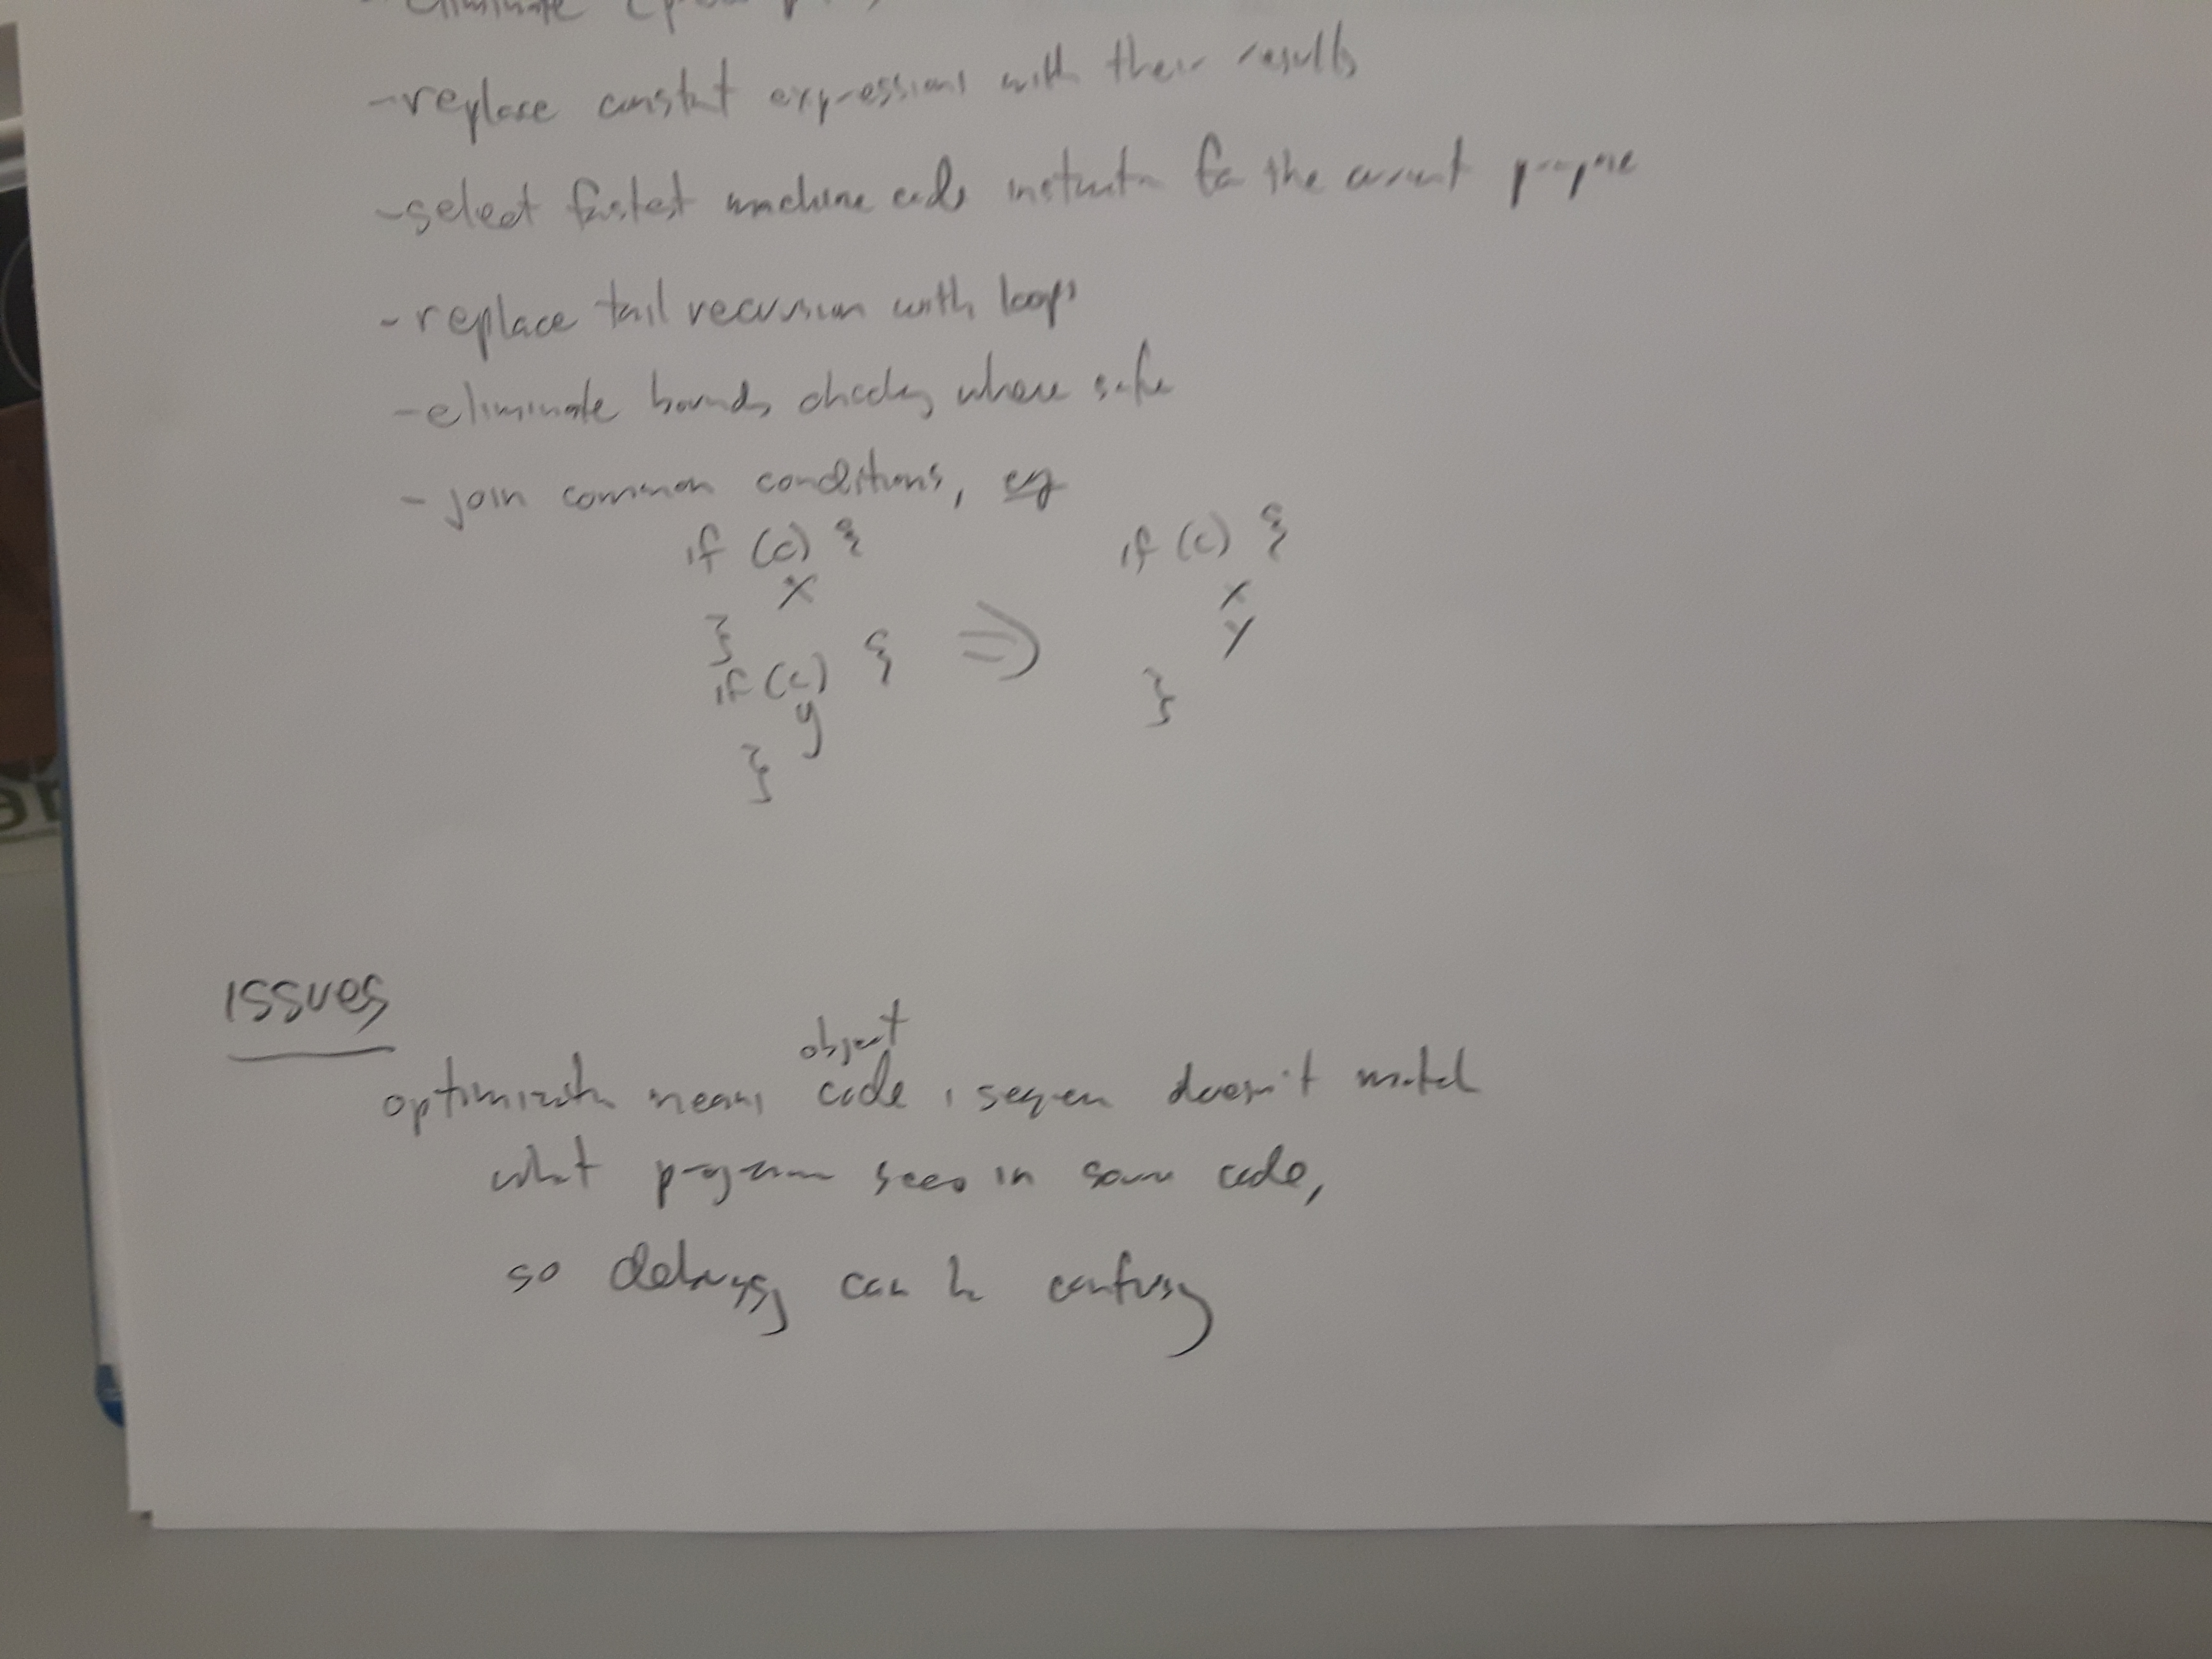 - eliminate
- replace constant expressions with their results
- select fastest machine code instruction for the current purpose
- replace tail recursion with loops
- eliminate bounds checks where safe
- join common conditions, eg
if (c) { if (c) {
x x
} y
if (c) { ⇒ }
y
}
ISSUES
object
optimization means code sequence doesn't match
what programmer sees in source code,
so debugging can be confusing